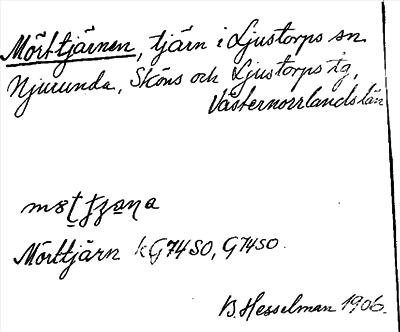 Mörttjärnen, tjärn i Ljustorps sn
Njurunda, Sköns och Ljustorps tg,
Västernorrlands län
Mörttjärn k G74SO, G74SO.
B. Hesselman 1906.